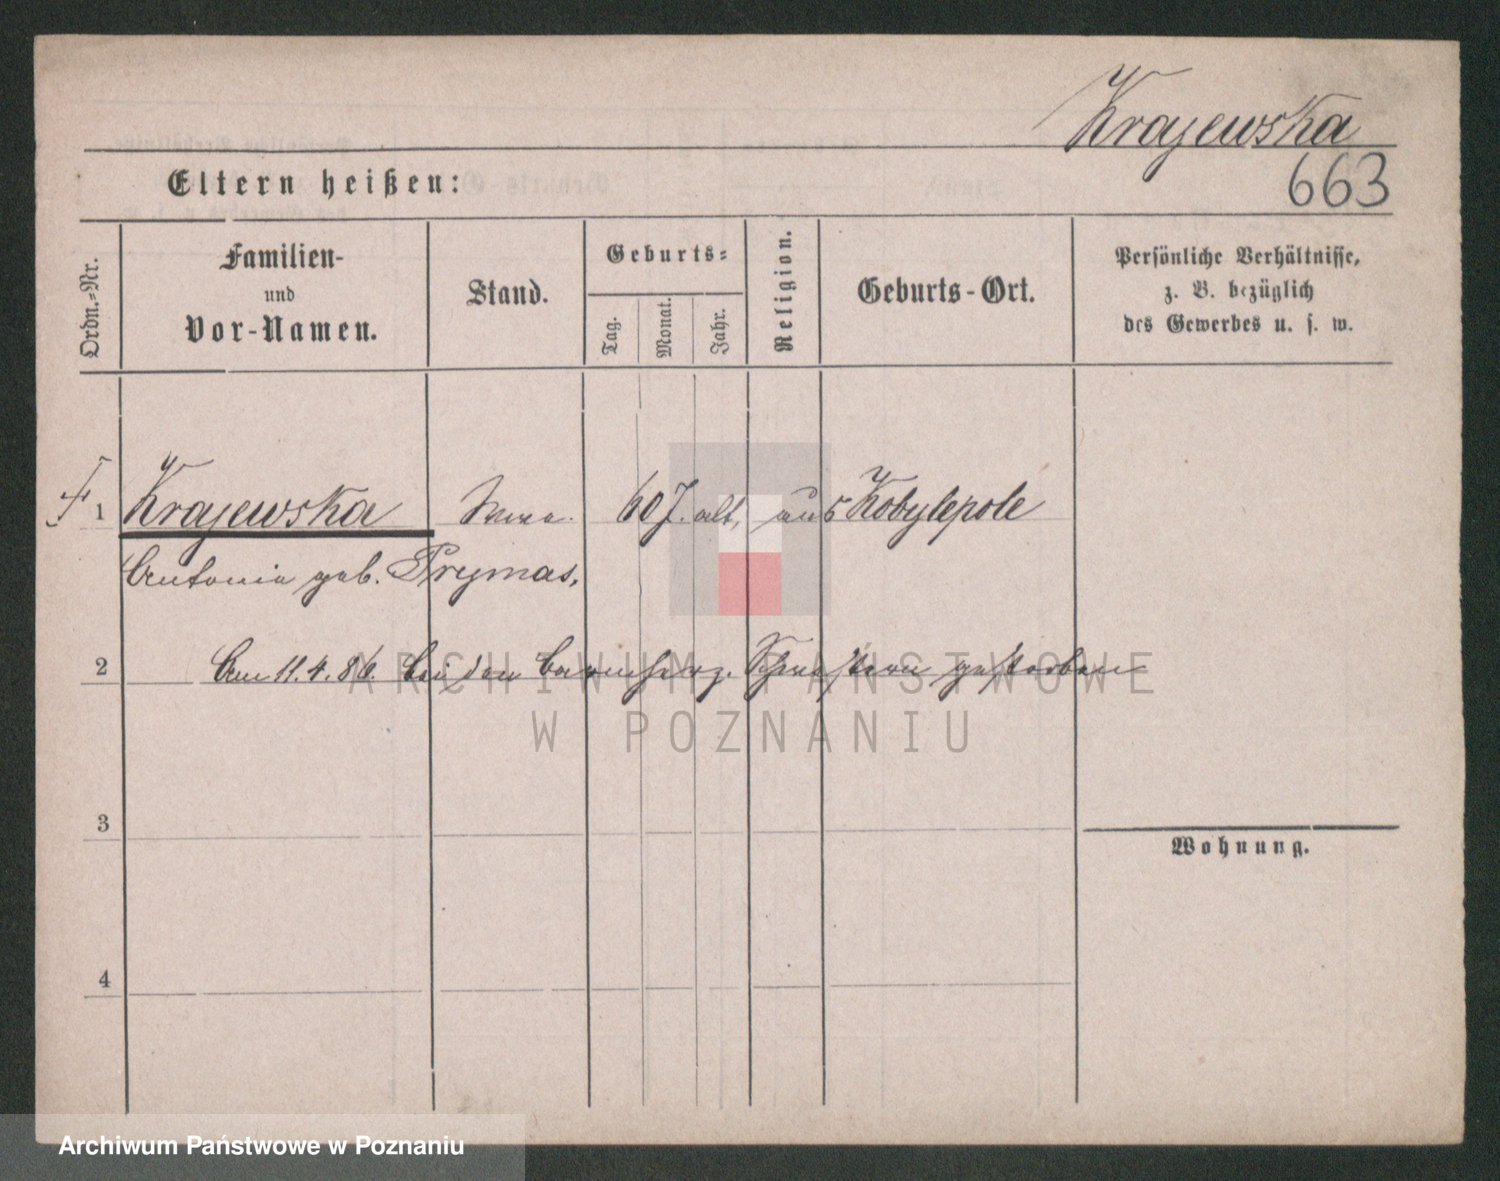 Krajewska
663
Eltern heißen:
Ordn.-Nr.
Familien-
und
Vor-Namen.
Stand.
Geburts-
Tag.
Monat.
Jahr.
Religion.
Geburts-Ort.
Persönliche Verhältnisse,
z. B. bezüglich
des Gewerbes u. s. w.
1 Krajewska 60 J. alt, aus Kobylepole
Antonia geb. Prymas.
2 Am 11.4.86. bei den barmherz. Schwestern gestorben
ARCHIWUM PAŃSTWOWE
W POZNANIU
3
Wohnung.
4
Archiwum Państwowe w Poznaniu